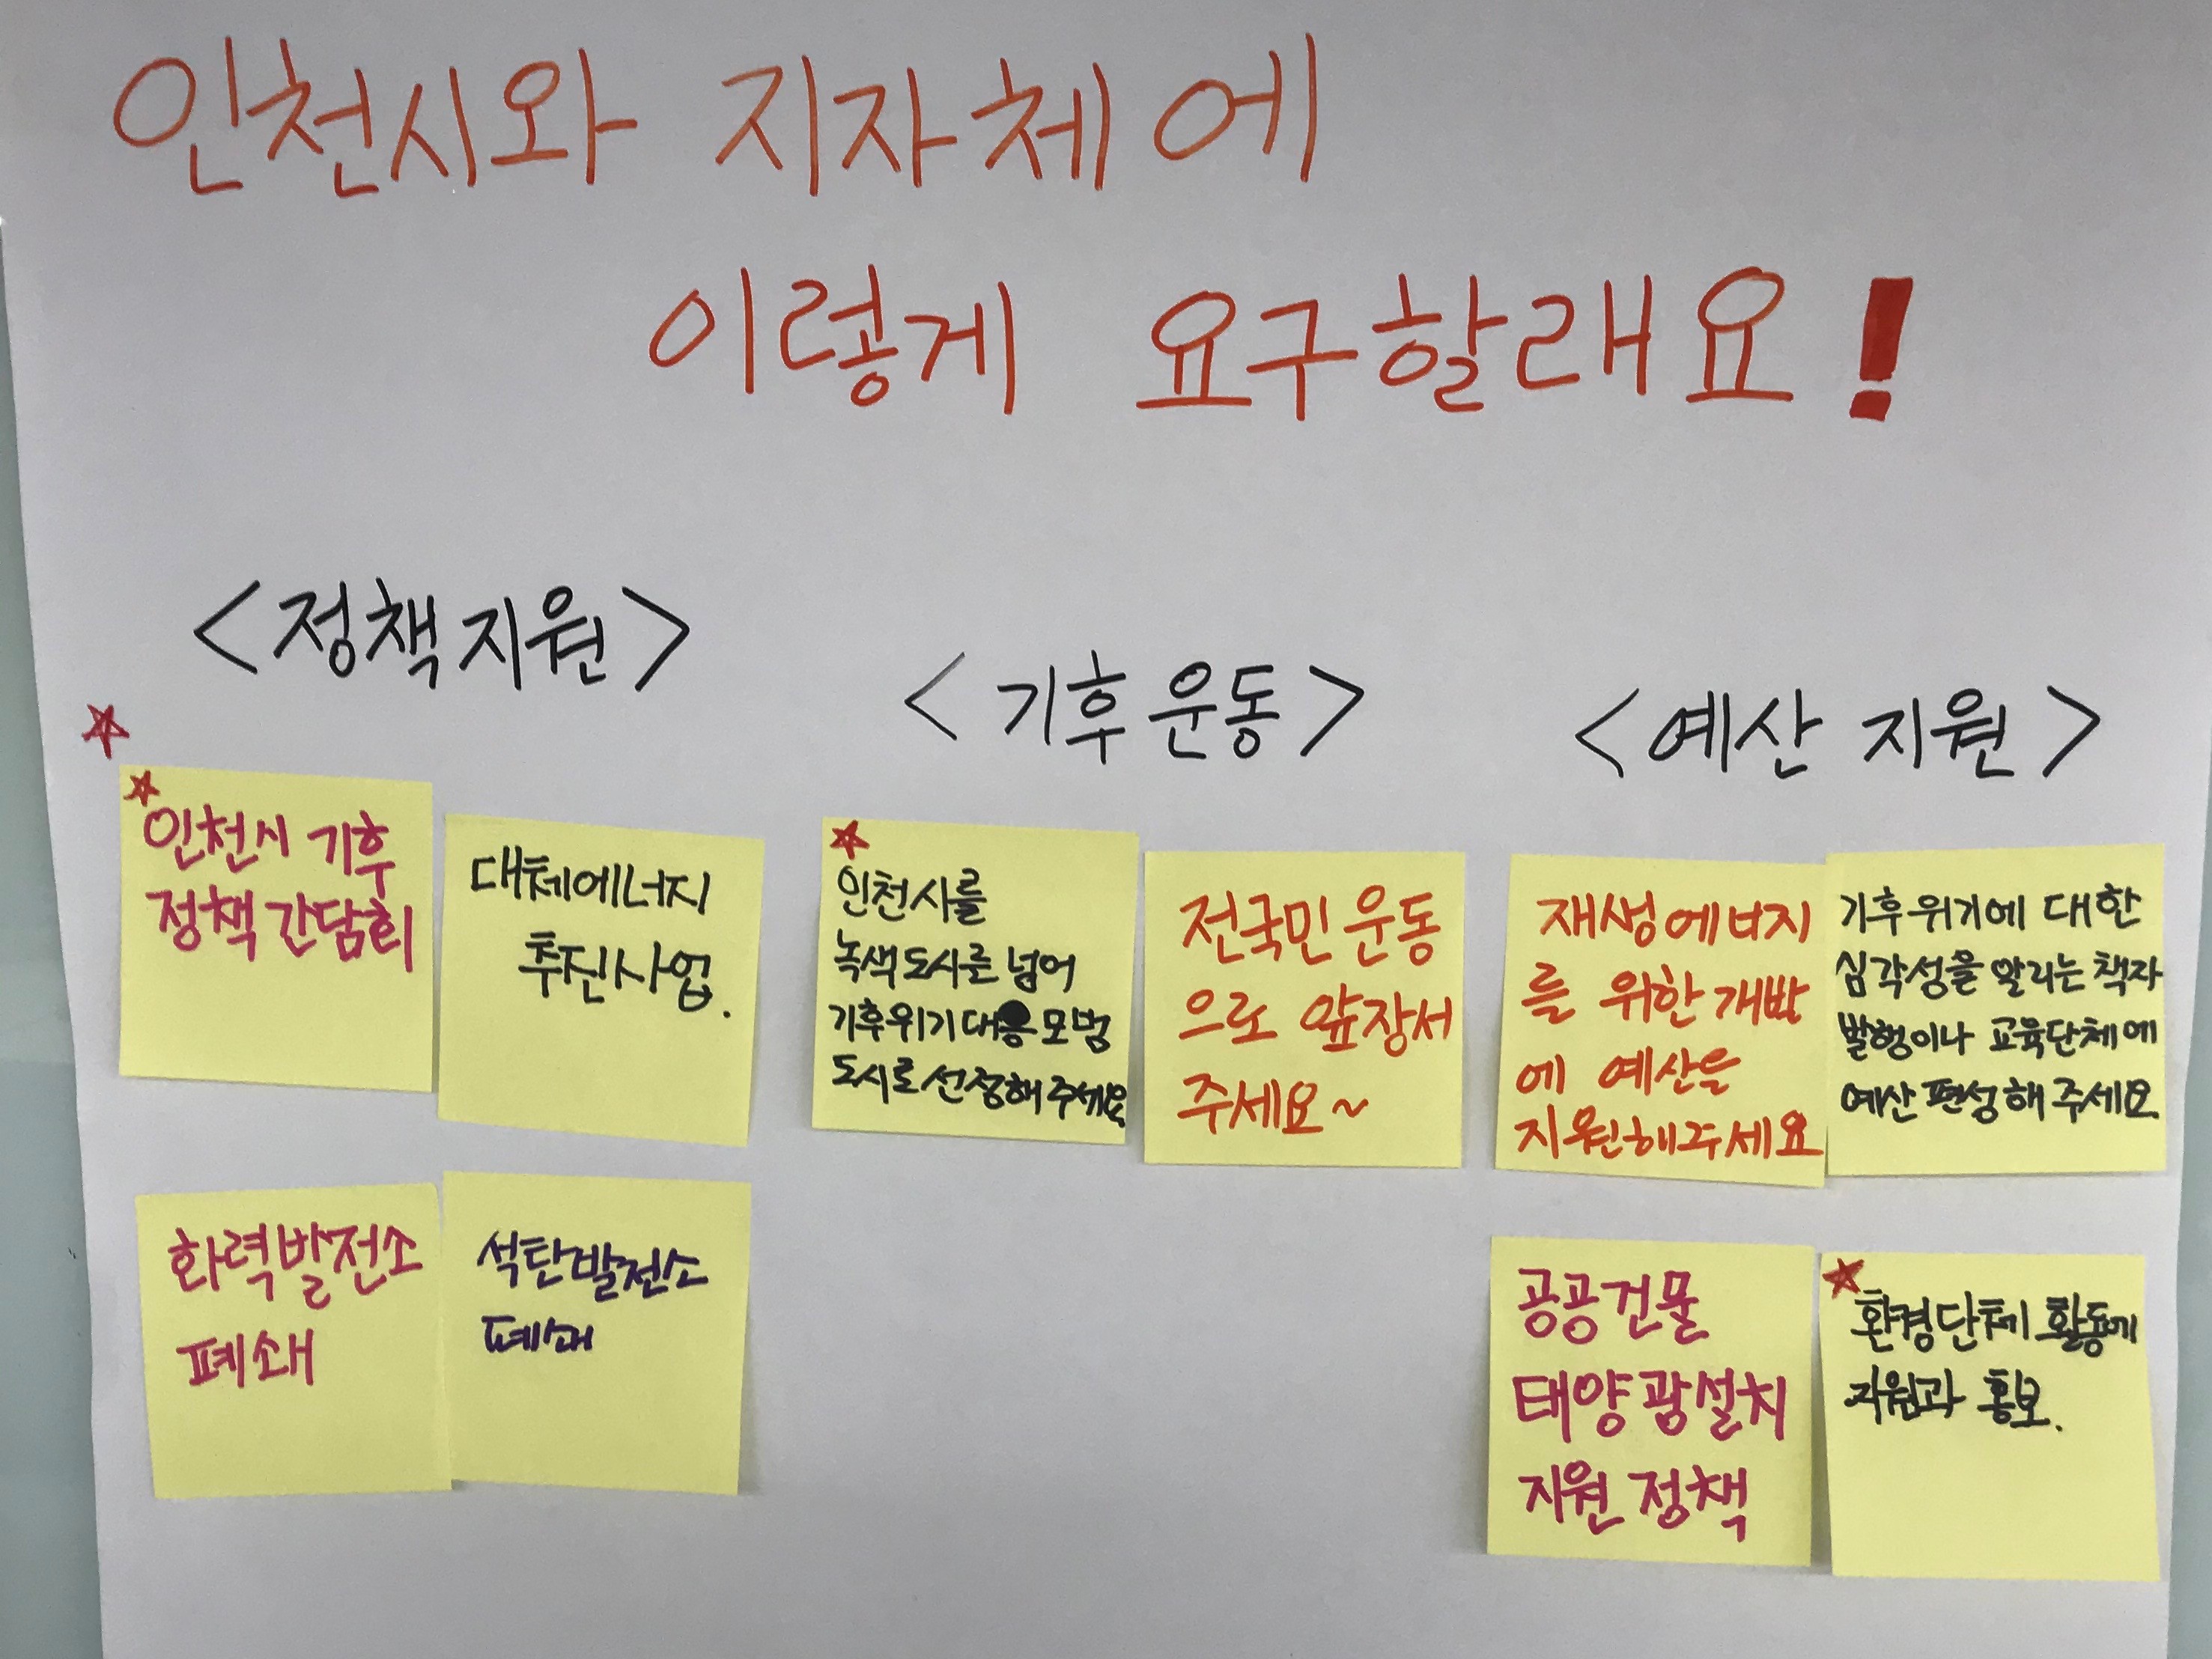 인천시와 지자체에
이렇게 요구할래요!
<정책지원>
인천시 기후
정책 간담회
대체에너지
추진사업.
화력발전소
폐쇄
석탄발전소
폐쇄
<기후 운동>
인천시를
녹색도시를 넘어
기후위기 대응 모범
도시로 선정해 주세요
전국민 운동
으로 앞장서
주세요~
<예산 지원>
재생에너지
를 위한 개발
에 예산을
지원해주세요
기후위기에 대한
심각성을 알리는 책자
발행이나 교육단체에
예산 편성해 주세요
공공건물
태양광설치
지원 정책
환경단체 활동에
지원과 홍보.